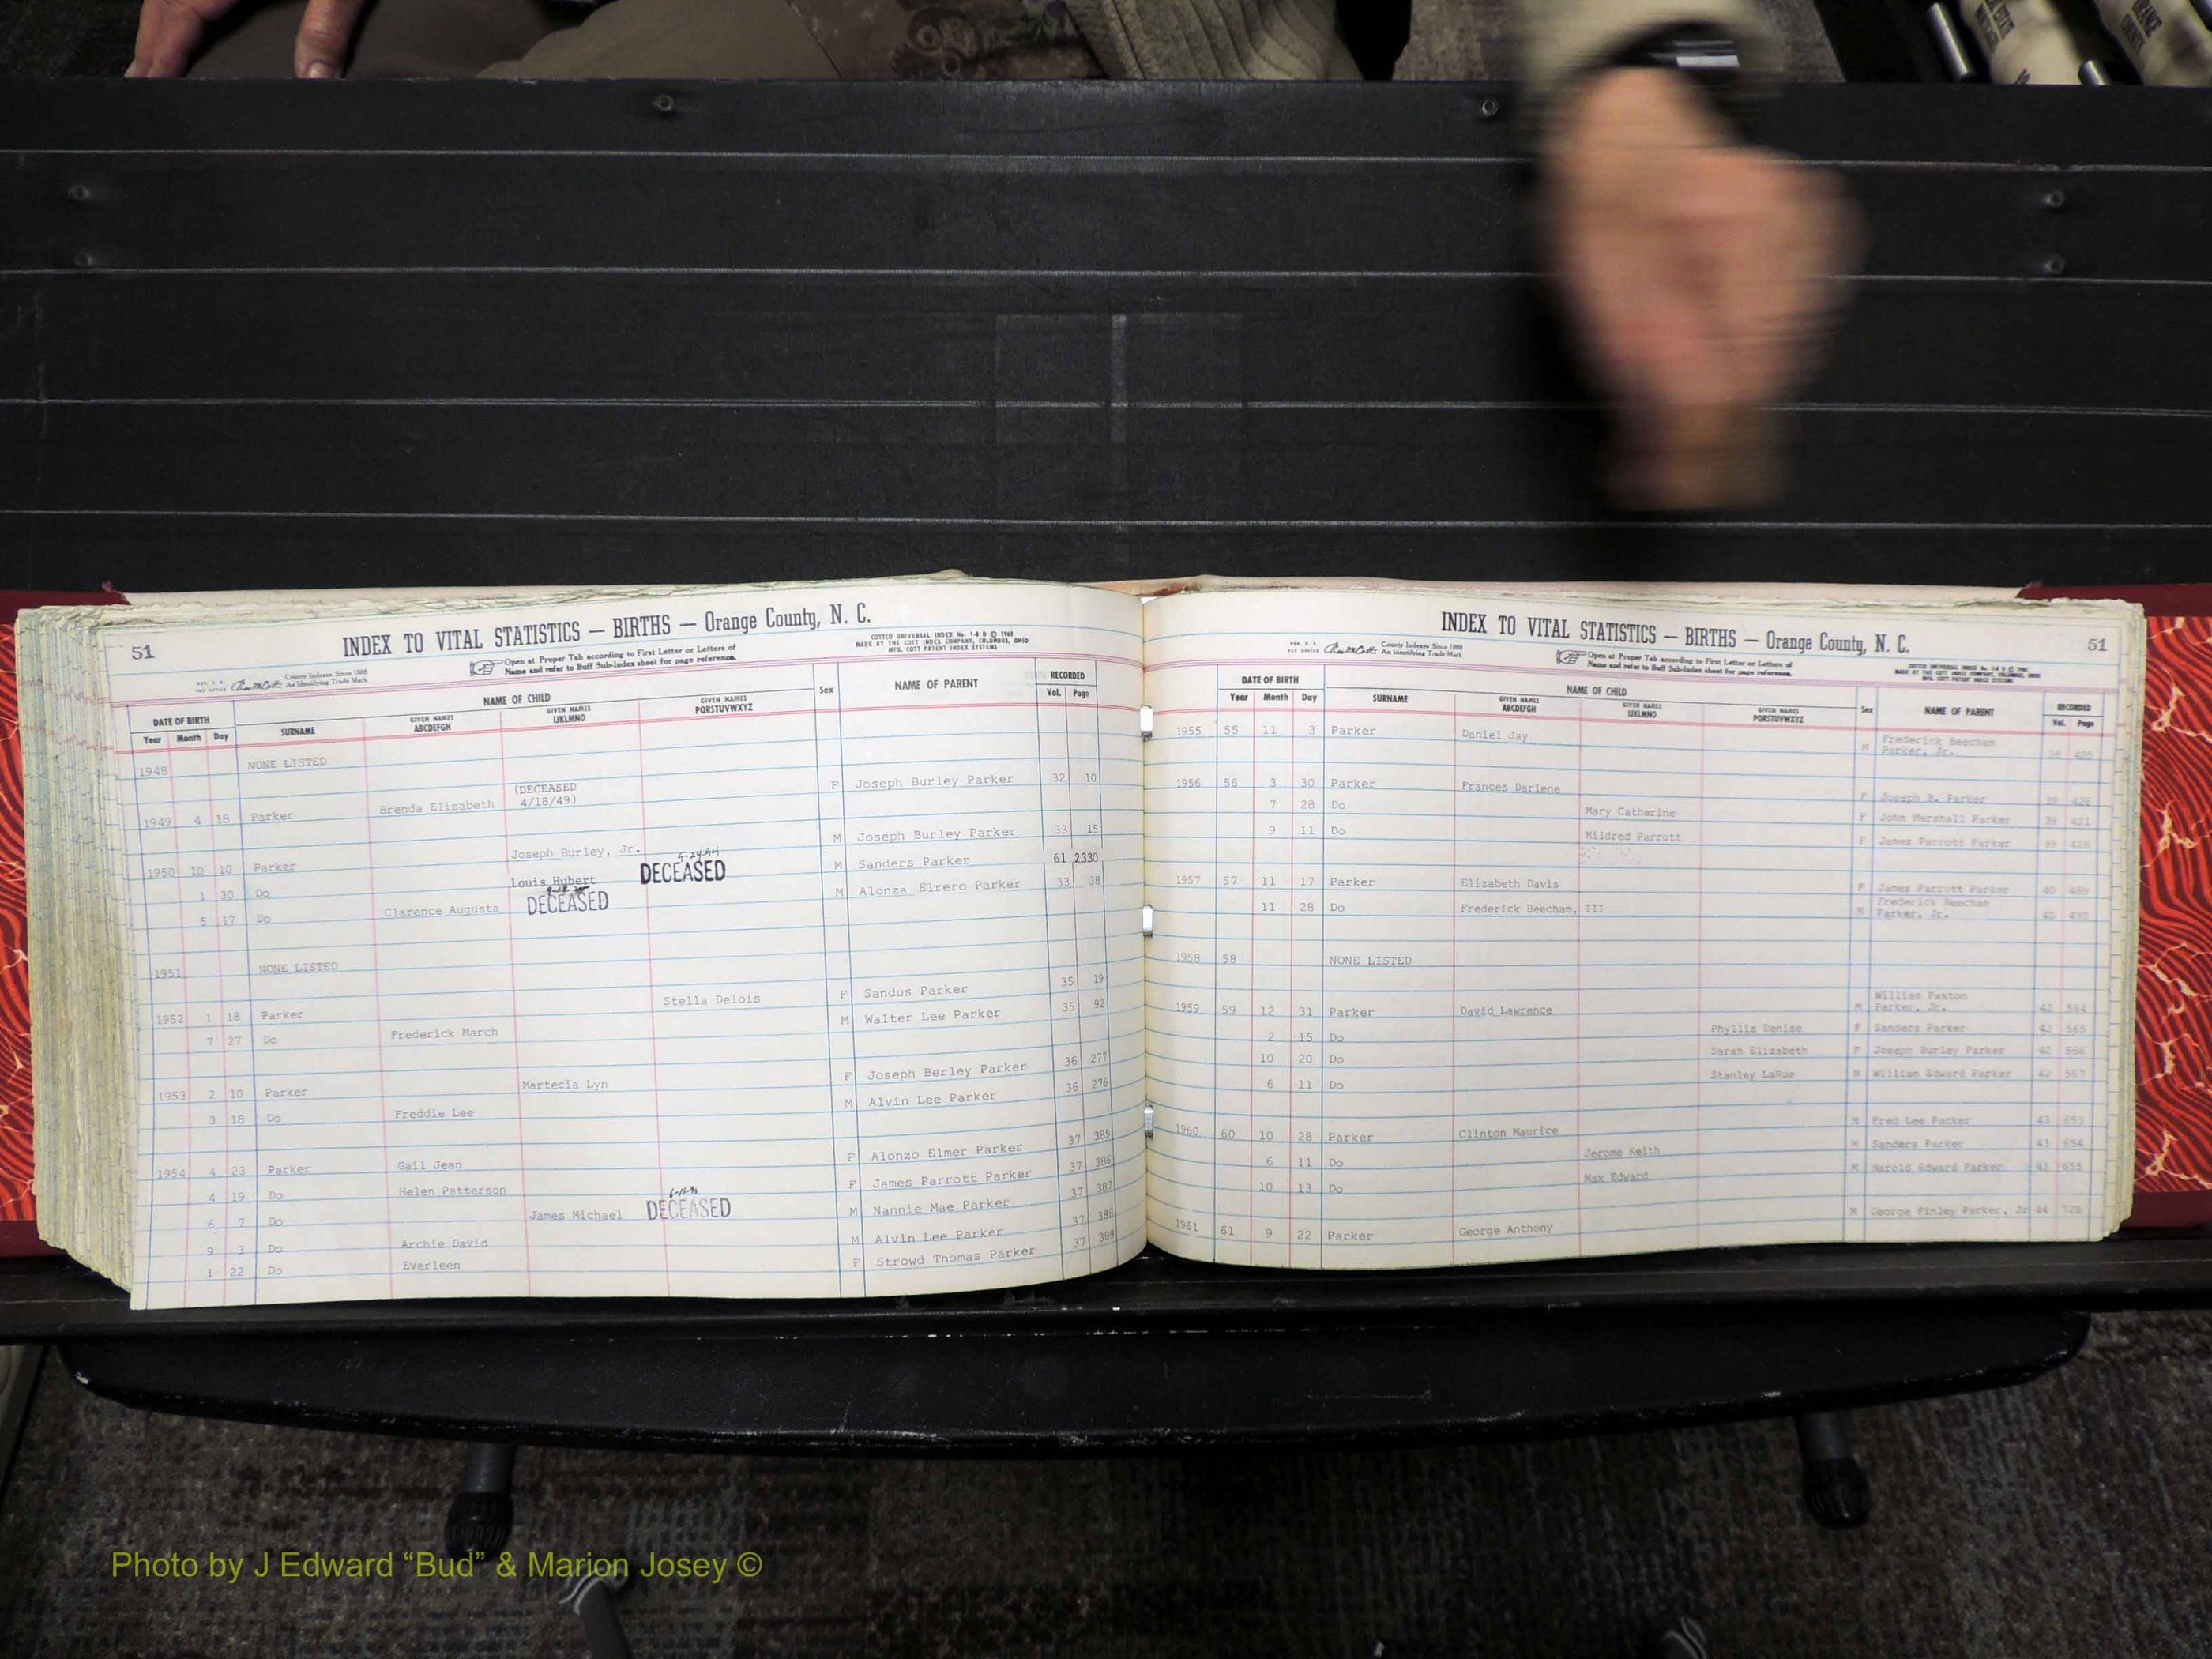 51
INDEX TO VITAL STATISTICS — BIRTHS — Orange County, N. C.
COTTCO UNIVERSAL INDEX No. 1-8 B © 1962
MADE BY THE COTT INDEX COMPANY, COLUMBUS, OHIO
MFG. COTT PATENT INDEX SYSTEMS
County Indexes Since 1888
An Identifying Trade Mark
Open at Proper Tab according to First Letter or Letters of
Name and refer to Buff Sub-Index sheet for page reference.
DATE OF BIRTH NAME OF CHILD Sex NAME OF PARENT RECORDED
Year Month Day SURNAME GIVEN NAMES ABCDEFGH GIVEN NAMES IJKLMNO GIVEN NAMES PQRSTUVWXYZ Vol. Page
1948 NONE LISTED
1949 4 18 Parker Brenda Elizabeth (DECEASED 4/18/49) F Joseph Burley Parker 32 10
1950 10 10 Parker Joseph Burley, Jr. M Joseph Burley Parker 33 15
1 30 Do Louis Hubert DECEASED M Sanders Parker 61 2330
5 17 Do Clarence Augusta DECEASED M Alonza Elrero Parker 33 38
1951 NONE LISTED
1952 1 18 Parker Stella Delois F Sandus Parker 35 19
7 27 Do Frederick March M Walter Lee Parker 35 92
1953 2 10 Parker Martecia Lyn F Joseph Berley Parker 36 277
3 18 Do Freddie Lee M Alvin Lee Parker 36 276
1954 4 23 Parker Gail Jean F Alonzo Elmer Parker 37 385
4 19 Do Helen Patterson F James Parrott Parker 37 386
6 7 Do James Michael DECEASED M Nannie Mae Parker 37 387
9 3 Do Archie David M Alvin Lee Parker 37 388
1 22 Do Everleen F Strowd Thomas Parker 37 389
INDEX TO VITAL STATISTICS — BIRTHS — Orange County, N. C.
51
County Indexes Since 1888
An Identifying Trade Mark
Open at Proper Tab according to First Letter or Letters of
Name and refer to Buff Sub-Index sheet for page reference.
DATE OF BIRTH NAME OF CHILD Sex NAME OF PARENT RECORDED
Year Month Day SURNAME GIVEN NAMES ABCDEFGH GIVEN NAMES IJKLMNO GIVEN NAMES PQRSTUVWXYZ Vol. Page
1955 55 11 3 Parker Daniel Jay M Frederick Beecham Parker, Jr. 38 425
1956 56 3 30 Parker Frances Darlene F Joseph B. Parker 39 426
7 28 Do Mary Catherine F John Marshall Parker 39 421
9 11 Do Mildred Parrott F James Parrott Parker 39 428
1957 57 11 17 Parker Elizabeth Davis F James Parrott Parker 40 489
11 28 Do Frederick Beecham, III M Frederick Beecham Parker, Jr. 40 490
1958 58 NONE LISTED
1959 59 12 31 Parker David Lawrence M William Paxton Parker, Jr. 42 564
2 15 Do Phyllis Denise F Sanders Parker 42 565
10 20 Do Sarah Elizabeth F Joseph Burley Parker 42 566
6 11 Do Stanley LaRue M William Edward Parker 42 567
1960 60 10 28 Parker Clinton Maurice M Fred Lee Parker 43 653
6 11 Do Jerome Keith M Sanders Parker 43 654
10 13 Do Max Edward M Harold Edward Parker 43 655
1961 61 9 22 Parker George Anthony M George Finley Parker, Jr 44 728
Photo by J Edward “Bud” & Marion Josey ©